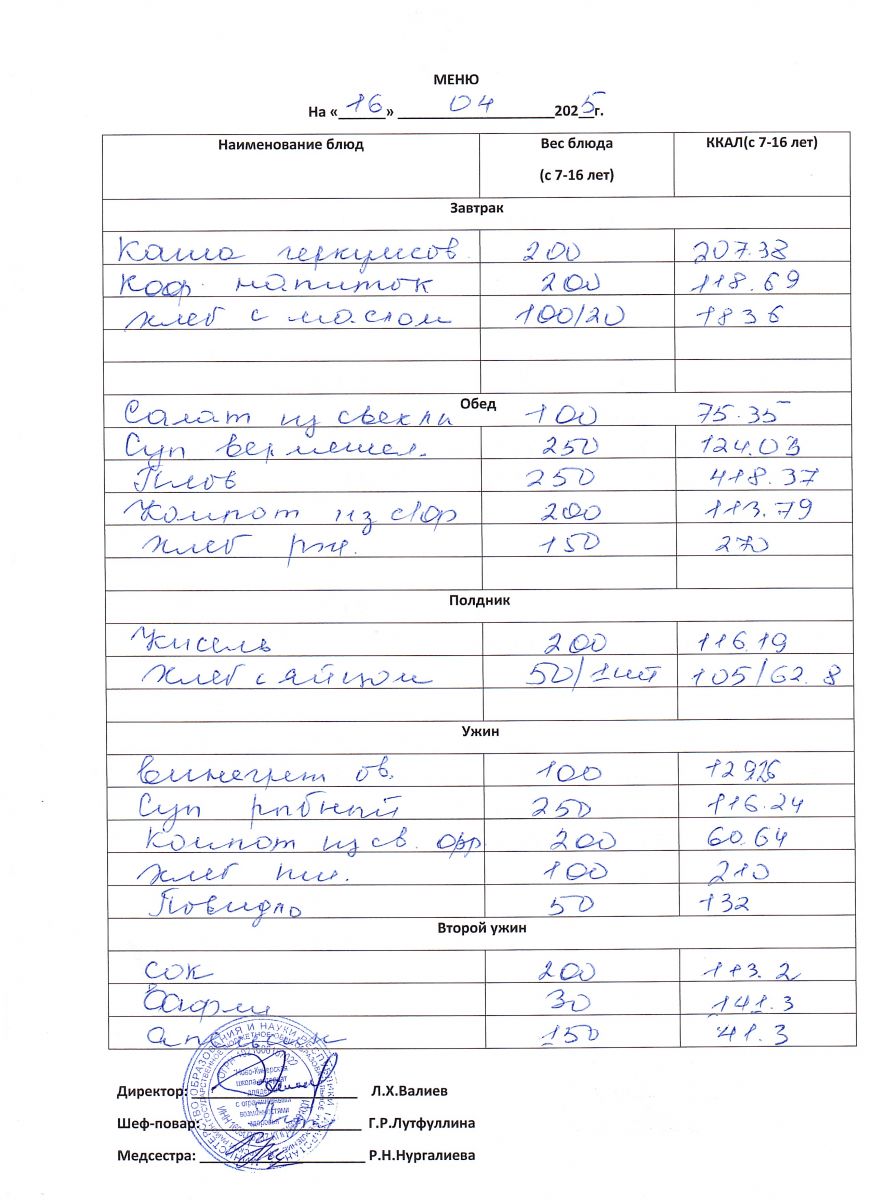 МЕНЮ
На «16» 04 2025г.
Наименование блюд Вес блюда (с 7-16 лет) ККАЛ(с 7-16 лет)
Завтрак
Каша геркулесов 200 207.38
Коф. напиток 200 118.69
хлеб с маслом 100/20 183 6
Обед
Салат из свекли 100 75.35
Суп вермешел. 250 124.03
Плов 250 418.37
Компот из с/фр 200 113.79
хлеб рж. 150 270
Полдник
Кисель 200 116.19
хлеб с яйцом 50/1шт 105/62.8
Ужин
Винегрет ов. 100
Суп рыбный 250 116.24
Компот из св. фр 200 60.64
хлеб пш. 100 210
Повидло 50 132
Второй ужин
сок 200 113.2
Вафли 30 141.3
апельсин 150 41.3
Директор: Л.Х.Валиев
Шеф-повар: Г.Р.Лутфуллина
Медсестра: Р.Н.Нургалиева